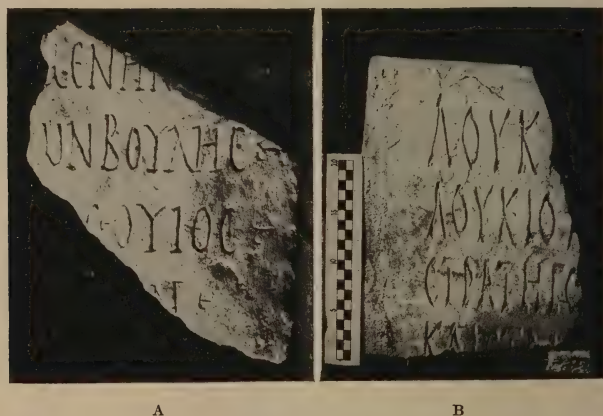 ϹΕΝΗ
ωΝΒΟΥΛΗϹ
ΟΥΙΟϹ
ΛΟΥΚ
ΛΟΥΚΙΟ
ϹΤΡΑΤΗΓΟ
ΚΑ
A
B